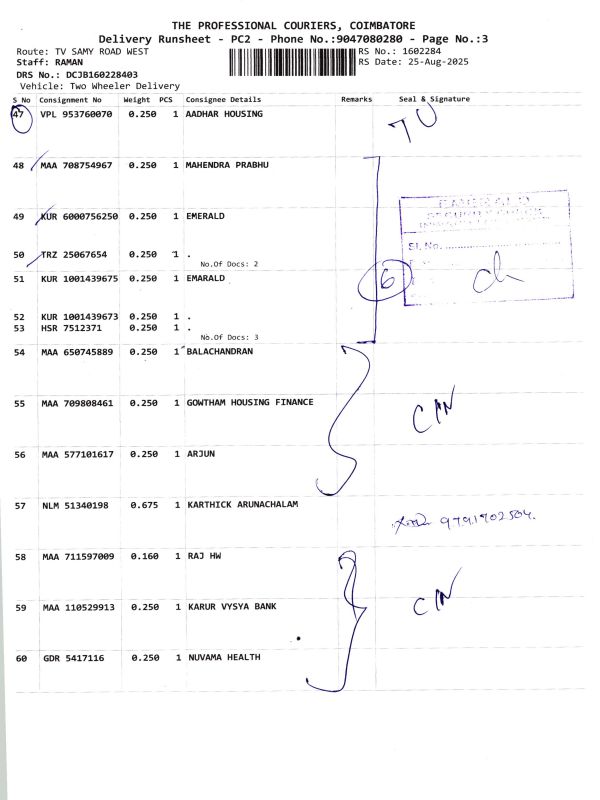 THE PROFESSIONAL COURIERS, COIMBATORE
Delivery Runsheet - PC2 - Phone No.:9047080280 - Page No.:3
Route: TV SAMY ROAD WEST RS No.: 1602284
Staff: RAMAN RS Date: 25-Aug-2025
DRS No.: DCJB160228403
Vehicle: Two Wheeler Delivery
S No Consignment No Weight PCS Consignee Details Remarks Seal & Signature
47 VPL 953760070 0.250 1 AADHAR HOUSING
48 MAA 708754967 0.250 1 MAHENDRA PRABHU
49 KUR 6000756250 0.250 1 EMERALD
Sl. No.
50 TRZ 25067654 0.250 1 .
No.Of Docs: 2
51 KUR 1001439675 0.250 1 EMARALD
6
52 KUR 1001439673 0.250 1 .
53 HSR 7512371 0.250 1 .
No.Of Docs: 3
54 MAA 650745889 0.250 1 BALACHANDRAN
55 MAA 709808461 0.250 1 GOWTHAM HOUSING FINANCE
C/N
56 MAA 577101617 0.250 1 ARJUN
57 NLM 51340198 0.675 1 KARTHICK ARUNACHALAM
9791902504.
58 MAA 711597009 0.160 1 RAJ HW
59 MAA 110529913 0.250 1 KARUR VYSYA BANK
C/N
60 GDR 5417116 0.250 1 NUVAMA HEALTH